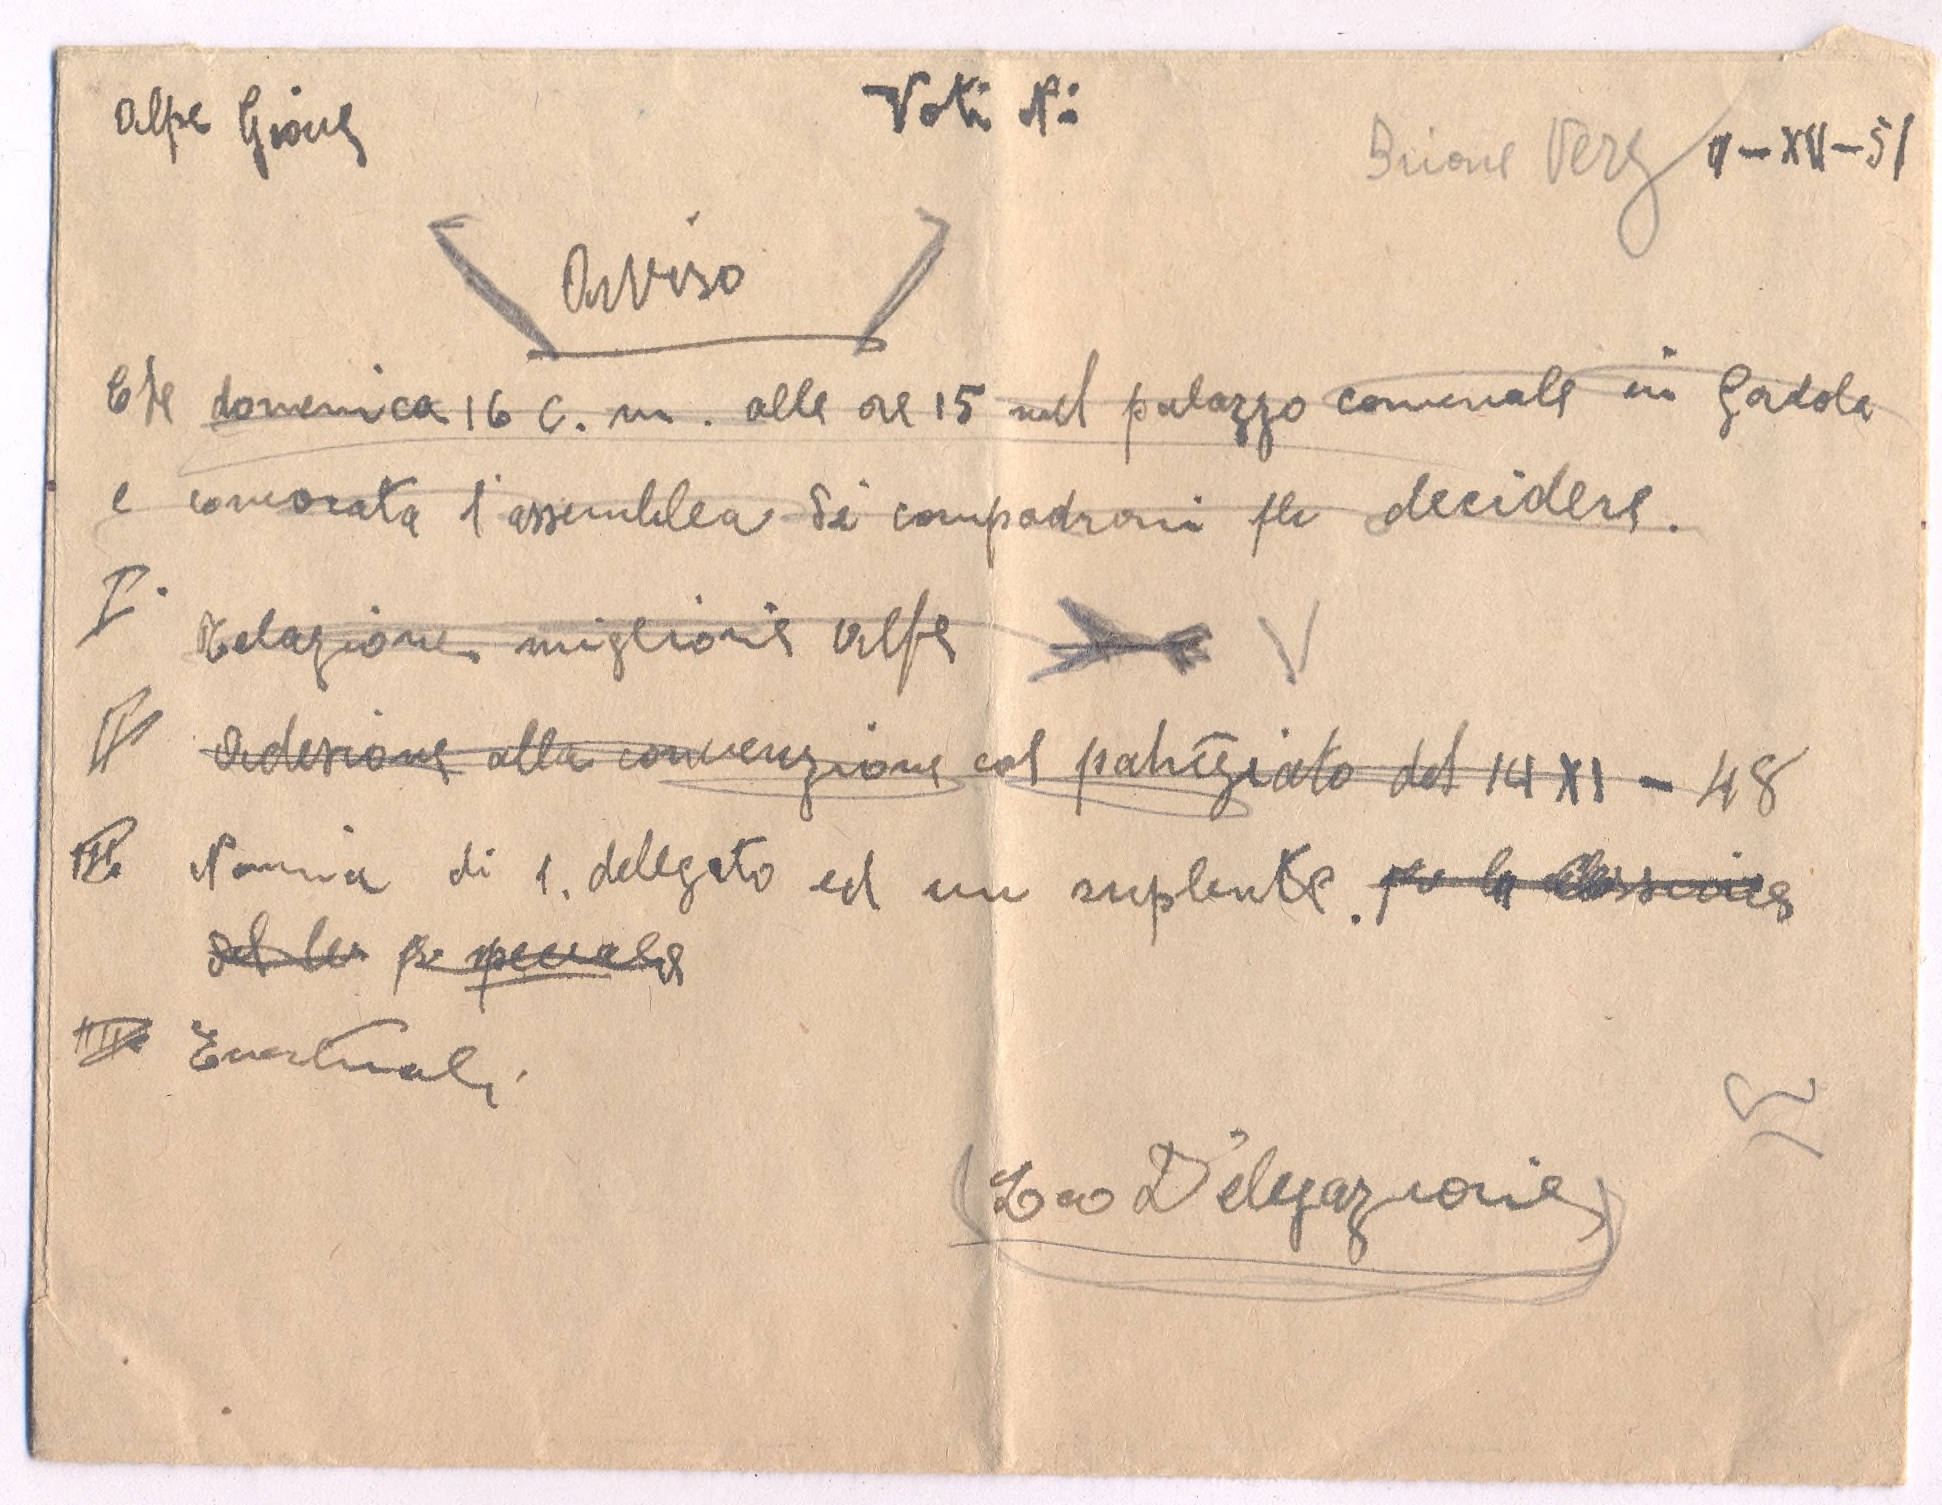 Alpe Giove
Voti Ni
Brione Verz II-XII-51
Avviso
Che domenica 16 C. m. alle ore 15 nel palazzo comunale in Gordola
e convocata l'assemblea di compadroni per decidere.
I. Relazione migliorie alpe V
II Adesione alla convenzione col patriziato del 14 XI - 48
III Nomina di 1. delegato ed un suplente. per la
per speciale
IIII Eventuali
La Delegazione